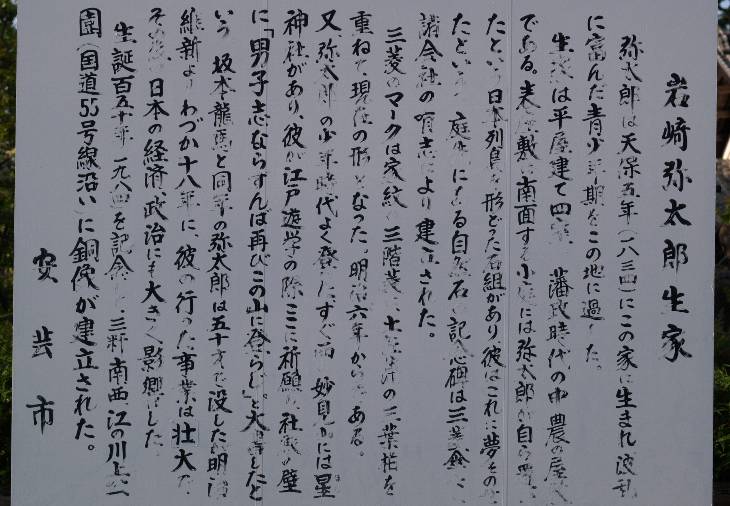 岩崎弥太郎生家
弥太郎は天保五年(一八三四)にこの家に生まれ波乱
に富んだ青少年期をこの地に過した。
生家は平屋建て四室、藩政時代の中農の屋
である。表座敷の南面する小庭には弥太郎が自ら
たという日本列島を形どった石組があり、彼はこれに夢をの
たという。庭先にある自然石の記念碑は三菱
諸会社の有志により建立された。
三菱のマークは家紋の三階菱に、土佐の三葉柏を
重ねて現在の形となった。明治六年からである。
又弥太郎の少年時代よく登った、すぐ西の妙見山には星
神社があり、彼が江戸遊学の際ここに祈願し社殿の壁
に「男子志ならずんば再びこの山に登らじ」と大書したと
いう 坂本龍馬と同年の弥太郎は五十才で没したが明治
維新よりわづか十八年に、彼の行った事業は壮大で
その後の日本の経済政治にも大きく影響した。
生誕百五十年(一九八四)を記念し、三粁南西江の川上公
園(国道55号線沿い)に銅像が建立された。
安芸市